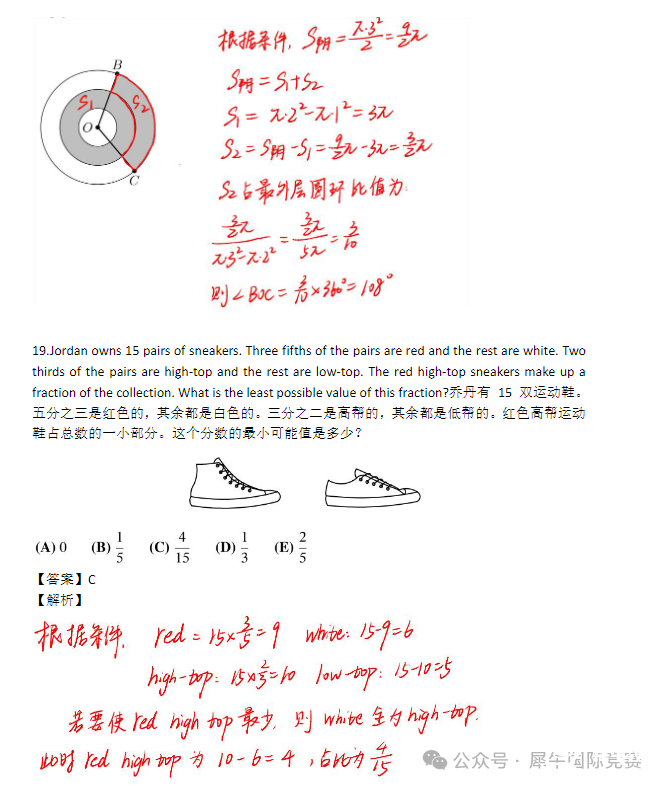 根据条件, S阴 = π·3²/2 = 9/2π
B
S阴 = S₁+S₂
S₁ S₂
S₁ = π·2²-π·1² = 3π
O
S₂ = S阴-S₁ = 9/2π-3π = 3/2π
C
S₂占最外层圆环比值为:
3/2π / π·3²-π·2² = 3/2π / 5π = 3/10
则∠BOC = 3/10×360° = 108°
19.Jordan owns 15 pairs of sneakers. Three fifths of the pairs are red and the rest are white. Two
thirds of the pairs are high-top and the rest are low-top. The red high-top sneakers make up a
fraction of the collection. What is the least possible value of this fraction?乔丹有 15 双运动鞋。
五分之三是红色的，其余都是白色的。三分之二是高帮的，其余都是低帮的。红色高帮运动
鞋占总数的一小部分。这个分数的最小可能值是多少？
(A) 0 (B) 1/5 (C) 4/15 (D) 1/3 (E) 2/5
【答案】C
【解析】
根据条件, red = 15×3/5 = 9 white: 15-9=6
high-top: 15×2/3=10 low-top: 15-10=5
若要使red high top最少, 则 white全为high-top.
此时 red high top 为 10-6=4, 占比为 4/15
公众号 · 犀牛国际竞赛